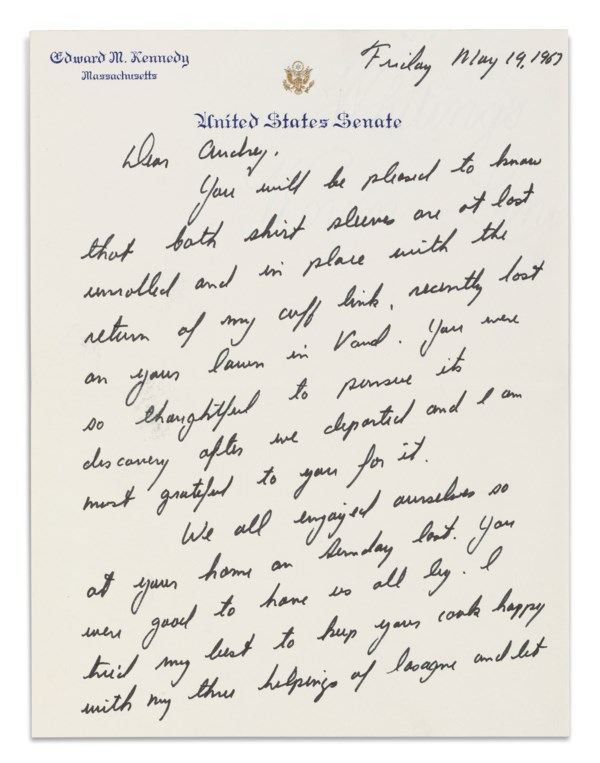 Edward M. Kennedy
Massachusetts
Friday May 19, 1967
United States Senate
Dear Audrey,
You will be pleased to know
that both shirt sleeves are at last
unrolled and in place with the
return of my cuff link, recently lost
on your lawn in Vaud. You were
so thoughtful to pursue its
discovery after we departed and I am
most grateful to you for it.
We all enjoyed ourselves so
at your home on Sunday last. You
were good to have us all by. I
tried my best to keep your cook happy
with my three helpings of lasagne and let